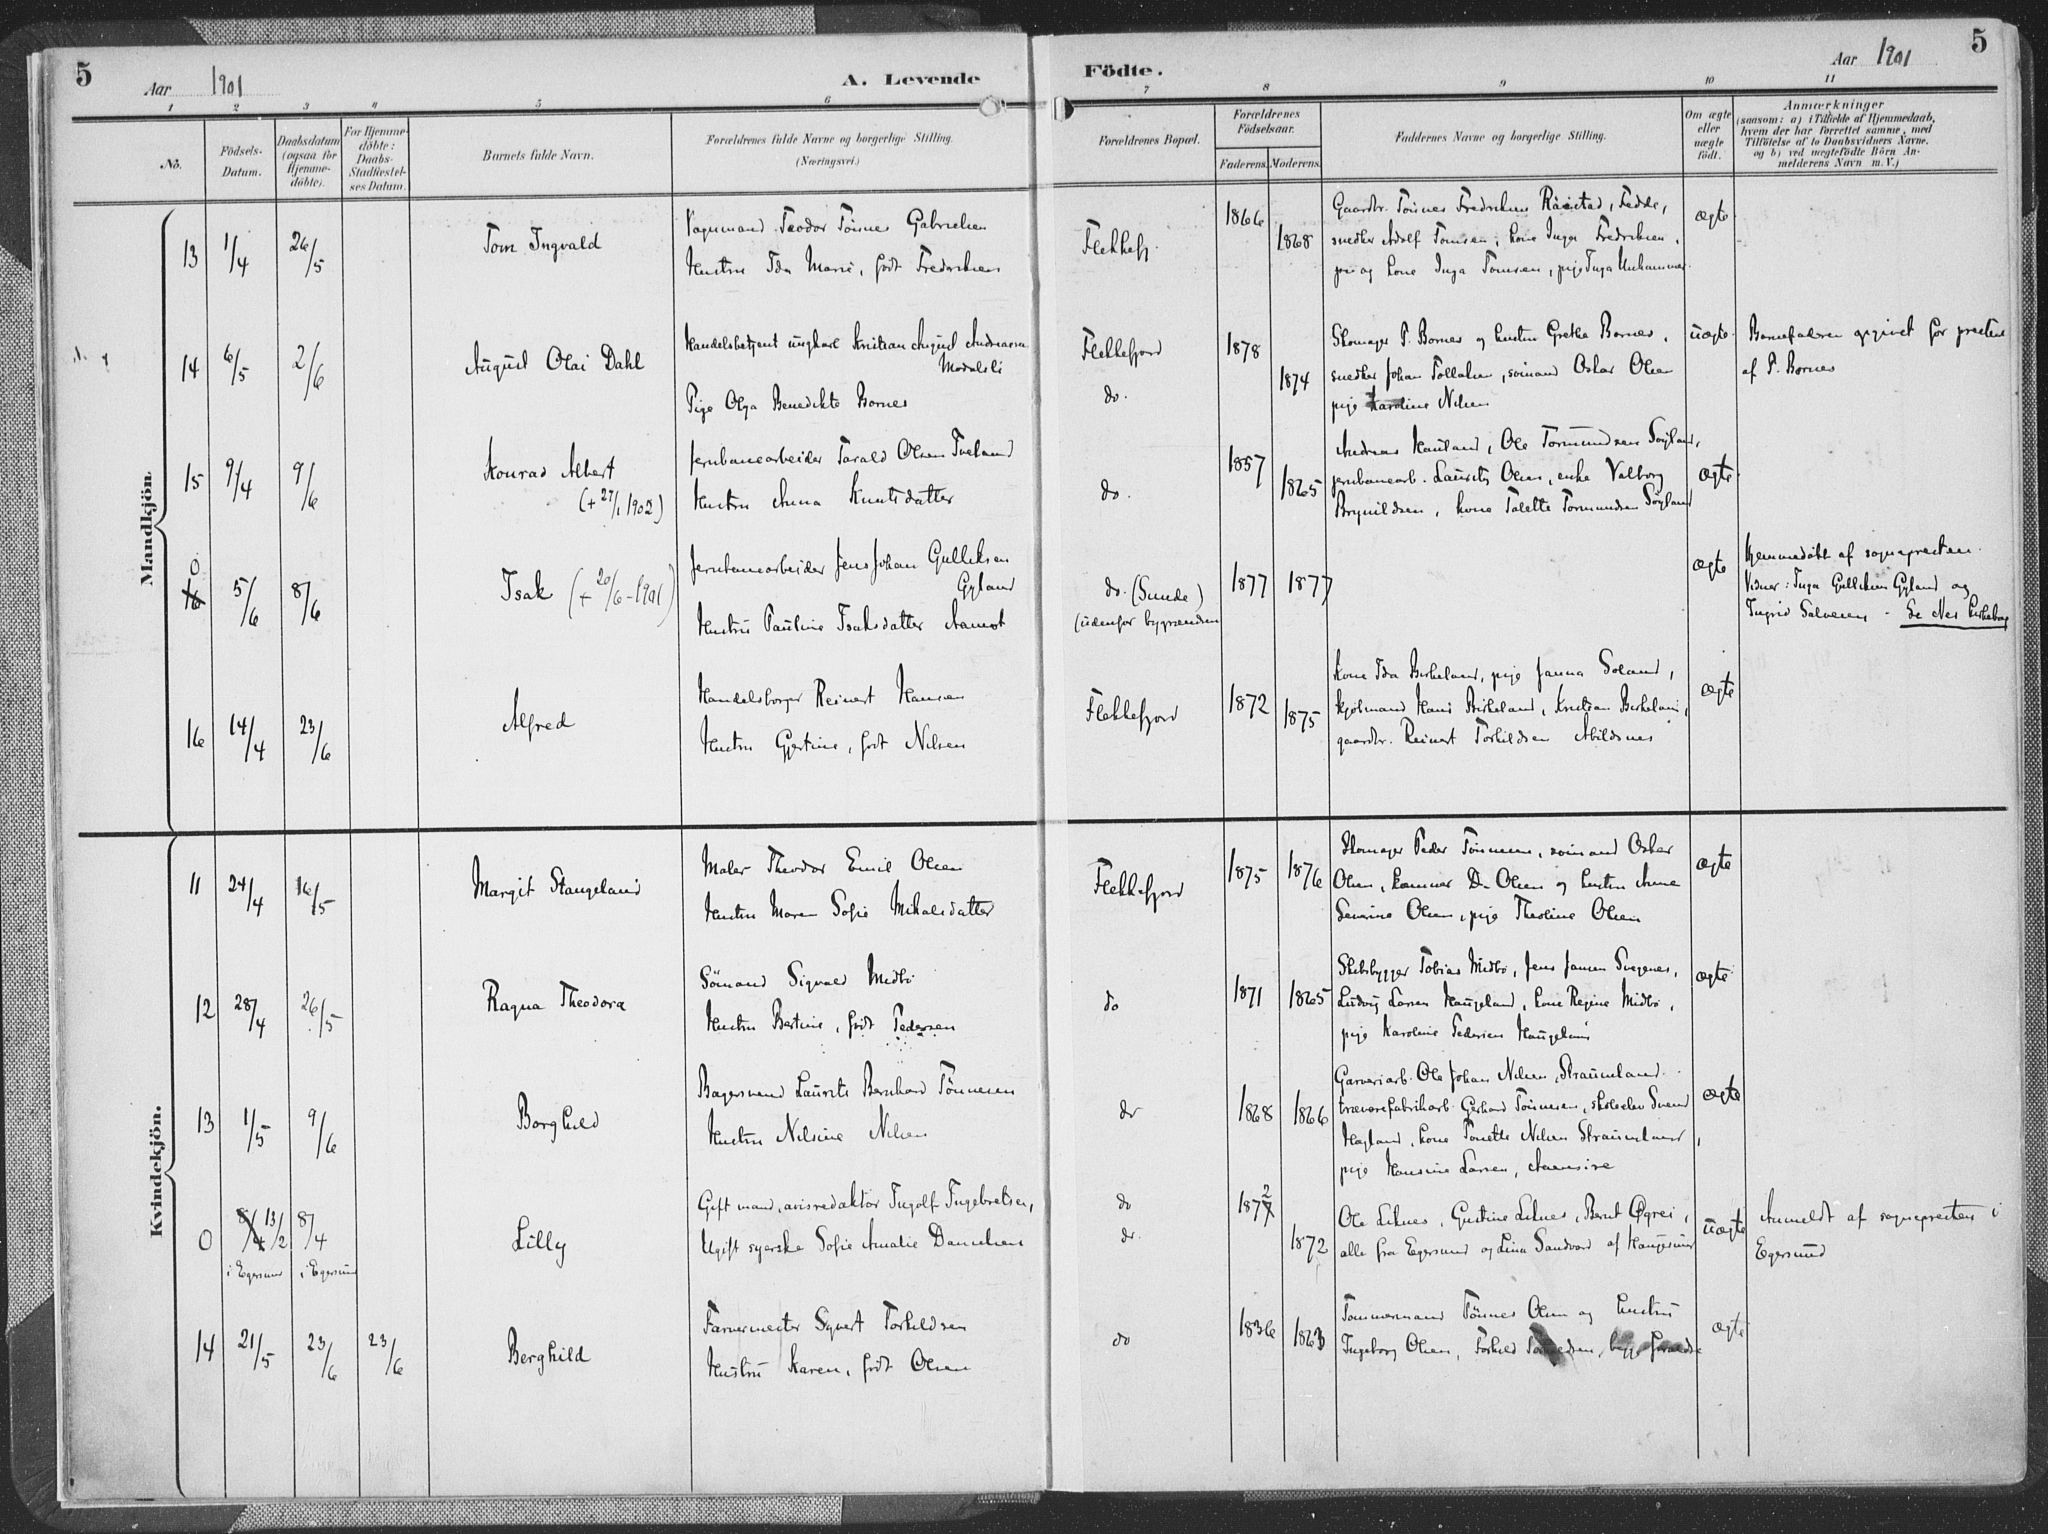 5
Aar 1901
A. Levende
Födte.
Aar 1901
5
1 2 3 4 5 6 7 8 9 10 11
No.
Födsels-
Datum.
Daabsdatum
(ogsaa for
Hjemme-
döbte).
For Hjemme-
döbte:
Daabs-
Stadfæstel-
ses Datum.
Barnets fulde Navn.
Forældrenes fulde Navne og borgerlige Stilling.
(Næringsvei.)
Forældrenes Bopæl.
Forældrenes
Födselsaar.
Faderens. Moderens.
Faddernes Navne og borgerlige Stilling.
Om ægte
eller
uægte
födt.
Anmærkninger
(saasom: a) i Tilfælde af Hjemmedaab,
hvem der har forrettet samme, med
Tilföielse af to Daabsvidners Navne,
og b) ved uægtefödte Börn An-
melderens Navn m. V.)
Mandkjön.
13 1/4 26/5 Tom Ingvald
Vognmand Teodor Tönnes Gabrielsen
Hustru Ida Marie, født Fredriksen
Flekkefj.
1866 1868
Gaardbr. Tönnes Fredriksen Raastad, Fedde,
snedker Adolf Tomsen, kone Inga Fredriksen,
kone Inga Tomsen, pige Inga Unhammer
ægte
14 6/5 2/6 August Olai Dahl
Handelsbetjent ungkarl Kristian August Andreassen
Modalsli
Pige Olga Benedikte Bornes
Flekkefjord
do.
1878 1874
Skomager P. Bornes og hustru Grethe Bornes,
snedker Johan Tollaksen, sömand Oskar Olsen
pige Karoline Nilsen
uægte
Barnefaderen opgivet for presten
af P. Bornes
15 9/4 9/6 Konrad Albert
(+ 27/1 1902)
Jernbanearbeider Tarald Olsen Tveland
Hustru Anna Knutsdatter
do.
1857 1865
Andreas Hauland, Ole Tormundsen Söyland,
jernbanearb. Laurits Olsen, enke Valborg
Brynildsen, kone Talette Tormundsen Söyland
ægte
0
16 5/6 8/6 Isak (+ 20/6 - 1901)
Jernbanearbeider Jens Johan Gulliksen
Gyland
Hustru Pauline Isaksdatter Aamot
do. (Sunde)
(udenfor bygrændsen
1877 1877
ægte
Hjemmedöbt af sognepresten.
Vidner: Inga Gulliksen Gyland og
Ingrid Salvesen - Se Nes kirkebog
16 14/4 23/6 Alfred
Handelsborger Reinert Hansen
Hustru Gjertine, født Nilsen
Flekkefjord
1872 1875
Kone Ida Birkeland, pige Janna Soland,
kjölmand Hans Birkeland, Kristian Birkeland,
gaardbr. Reinert Torkildsen Abildsnes
ægte
Kvindekjön.
11 24/4 16/5 Margit Stangeland
Maler Theodor Emil Olsen
Hustru Maren Sofie Mikalsdatter
Flekkefjord
1875 1876
Skomager Peder Tönnesen, sömand Oskar
Olsen, D. Olsen og hustru Anne
Severine Olsen, pige Theoline Olsen
ægte
12 28/4 26/5 Ragna Theodora
Sömand Sigvald Midbö
Hustru Bertine, født Pedersen
do
1871 1865
Skibsbygger Tobias Midbö, Jens Jansen Svegenes,
Ludvig Larsen Haugeland, kone Regine Midbö,
pige Karoline Pedersen Haugeland
ægte
13 1/5 9/6 Borghild
Bagersvend Laurits Bernhard Tönnesen
Hustru Nilsine Nilsen
do
1868 1866
Garveriarb. Ole Johan Nilsen Straumland
trævarefabrikarb. Gerhard Tönnesen, skoleelev Svend
Hagland, kone Tonette Nilsen Straumland,
pige Hansine Larsen, Aamsire
ægte
0 8/4 13/2 8/4
i Egersund i Egersund
Lilly
Gift mand, avisredaktör Ingolf Ingebretsen,
Ugift syerske Sofie Amalie Danielsen
do
do.
1872 1872
Ole Liknes, Gustine Liknes, Bernt Øgrei,
alle fra Egersund og Lina Sandvard af Haugesund
uægte
Anmeldt af sognepresten i
Egersund
14 21/5 23/6 23/6 Berghild
Farvermester Syvert Torkildsen
Hustru Karen, født Olsen
do
1836 1863
Tommermand Tönnes Olsen og hustru
Ingeborg Olsen, Torkild, begge forældre
ægte